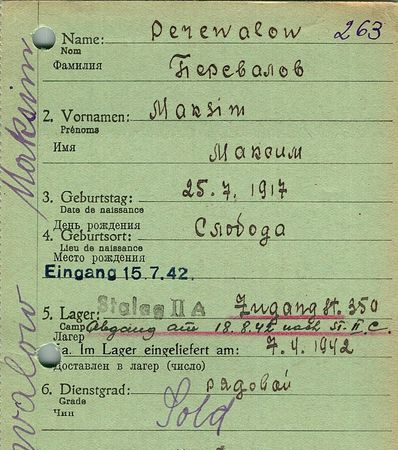 Name: Perewalow 263
Nom
Фамилия Перевалов
2. Vornamen: Maksim
Prénoms
Имя Максим
3. Geburtstag: 25.7.1917
Date de naissance
День рождения
4. Geburtsort: Слобода
Lieu de naissance
Место рождения
Eingang 15.7.42.
5. Lager: Stalag II A Zugang St. 350
Camp Abgang am 18.8.42 nach St. II. C.
Лагер
a. Im Lager eingeliefert am: 7.4.1942
Доставлен в лагер (число)
6. Dienstgrad: рядовой
Grade
Чин Sold
Maksim
walow